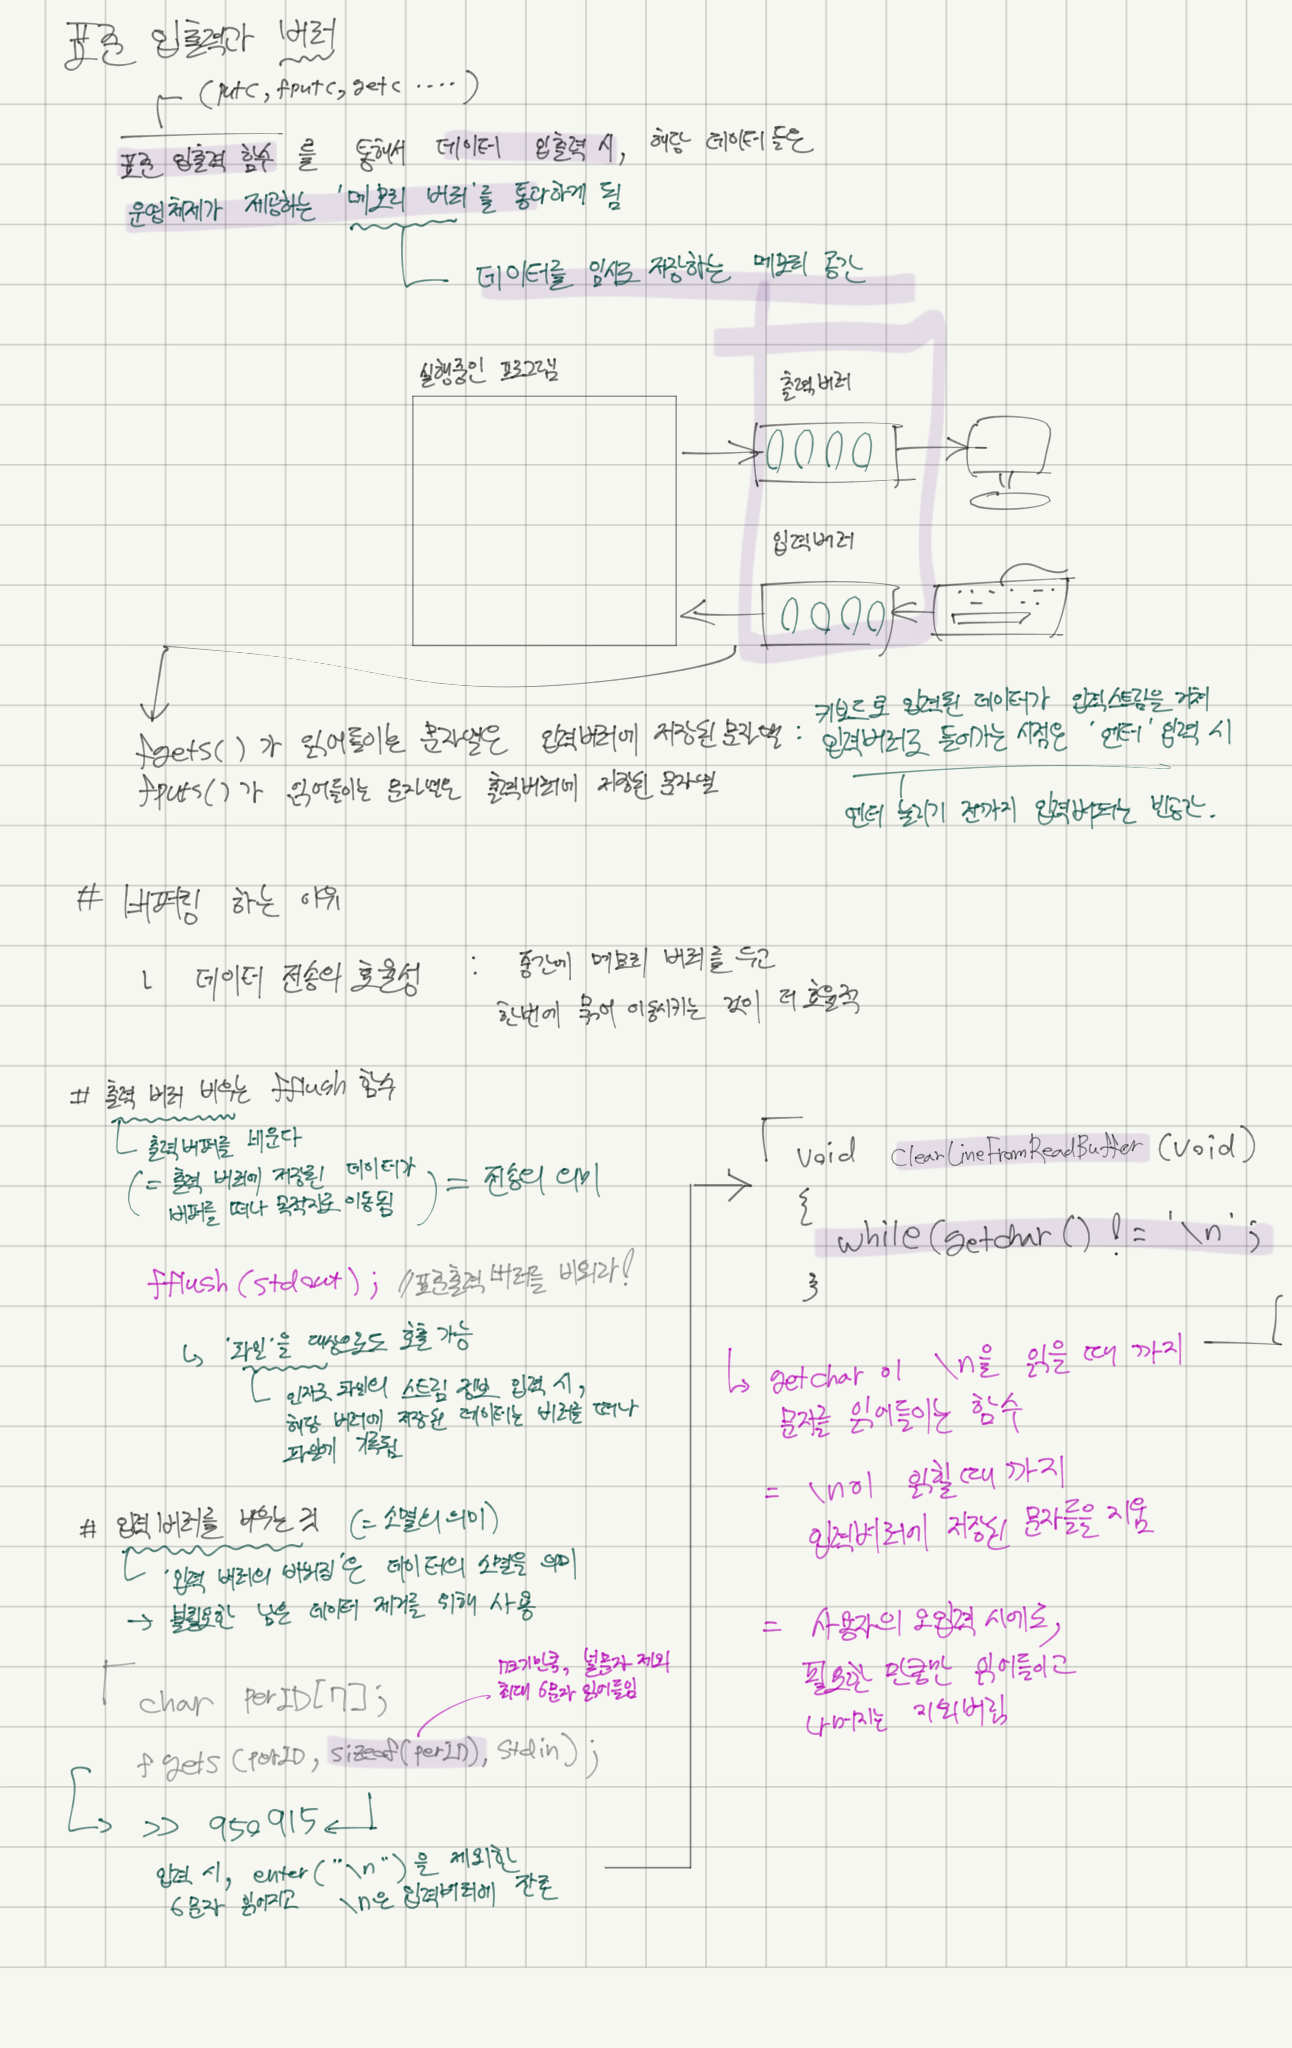 표준 입출력과 버퍼
(putc, fputc, getc ....)
표준 입출력 함수를 통해서 데이터 입출력 시, 해당 데이터들은
운영체제가 제공하는 '메모리 버퍼'를 통과하게 됨
데이터를 임시로 저장하는 메모리 공간
실행중인 프로그램
출력버퍼
입력버퍼
fgets()가 읽어들이는 문자열은 입력버퍼에 저장된 문자열 :
키보드로 입력된 데이터가 입력스트림을 거쳐
입력버퍼로 들어가는 시점은 '엔터' 입력 시
fputs()가 읽어들이는 문자열은 출력버퍼에 저장된 문자열
엔터 눌리기 전까지 입력버퍼는 빈공간.
# 버퍼링 하는 이유
ㄴ 데이터 전송의 효율성 : 중간에 메모리 버퍼를 두고
한번에 묶어 이동시키는 것이 더 효율적
# 출력 버퍼 비우는 fflush 함수
출력버퍼를 비운다
(= 출력 버퍼에 저장된 데이터가
버퍼를 떠나 목적지로 이동됨) = 전송의 의미
fflush(stdout); //표준출력버퍼를 비워라!
↳ '파일'을 대상으로도 호출 가능
인자로 파일의 스트림 정보 입력 시,
해당 버퍼에 저장된 데이터는 버퍼를 떠나
파일에 기록됨
# 입력버퍼를 비우는 것 (= 소멸의 의미)
'입력 버퍼의 비워짐'은 데이터의 소멸을 의미
→ 불필요한 남은 데이터 제거를 위해 사용
char perID[7];
7크기만큼, 널문자 제외
최대 6문자 읽어들임
fgets(perID, sizeof(perID), stdin);
>> 950915
입력 시, enter("\n")을 제외한
6문자 읽어지고 \n은 입력버퍼에 잔존
void ClearLineFromReadBuffer(void)
{
while(getchar() != '\n';
}
↳ getchar이 \n을 읽을 때 까지
문자를 읽어들이는 함수
= \n이 읽힐 때 까지
입력버퍼에 저장된 문자들을 지움
= 사용자의 오입력 시에도,
필요한 만큼만 읽어들이고
나머지는 지워버림